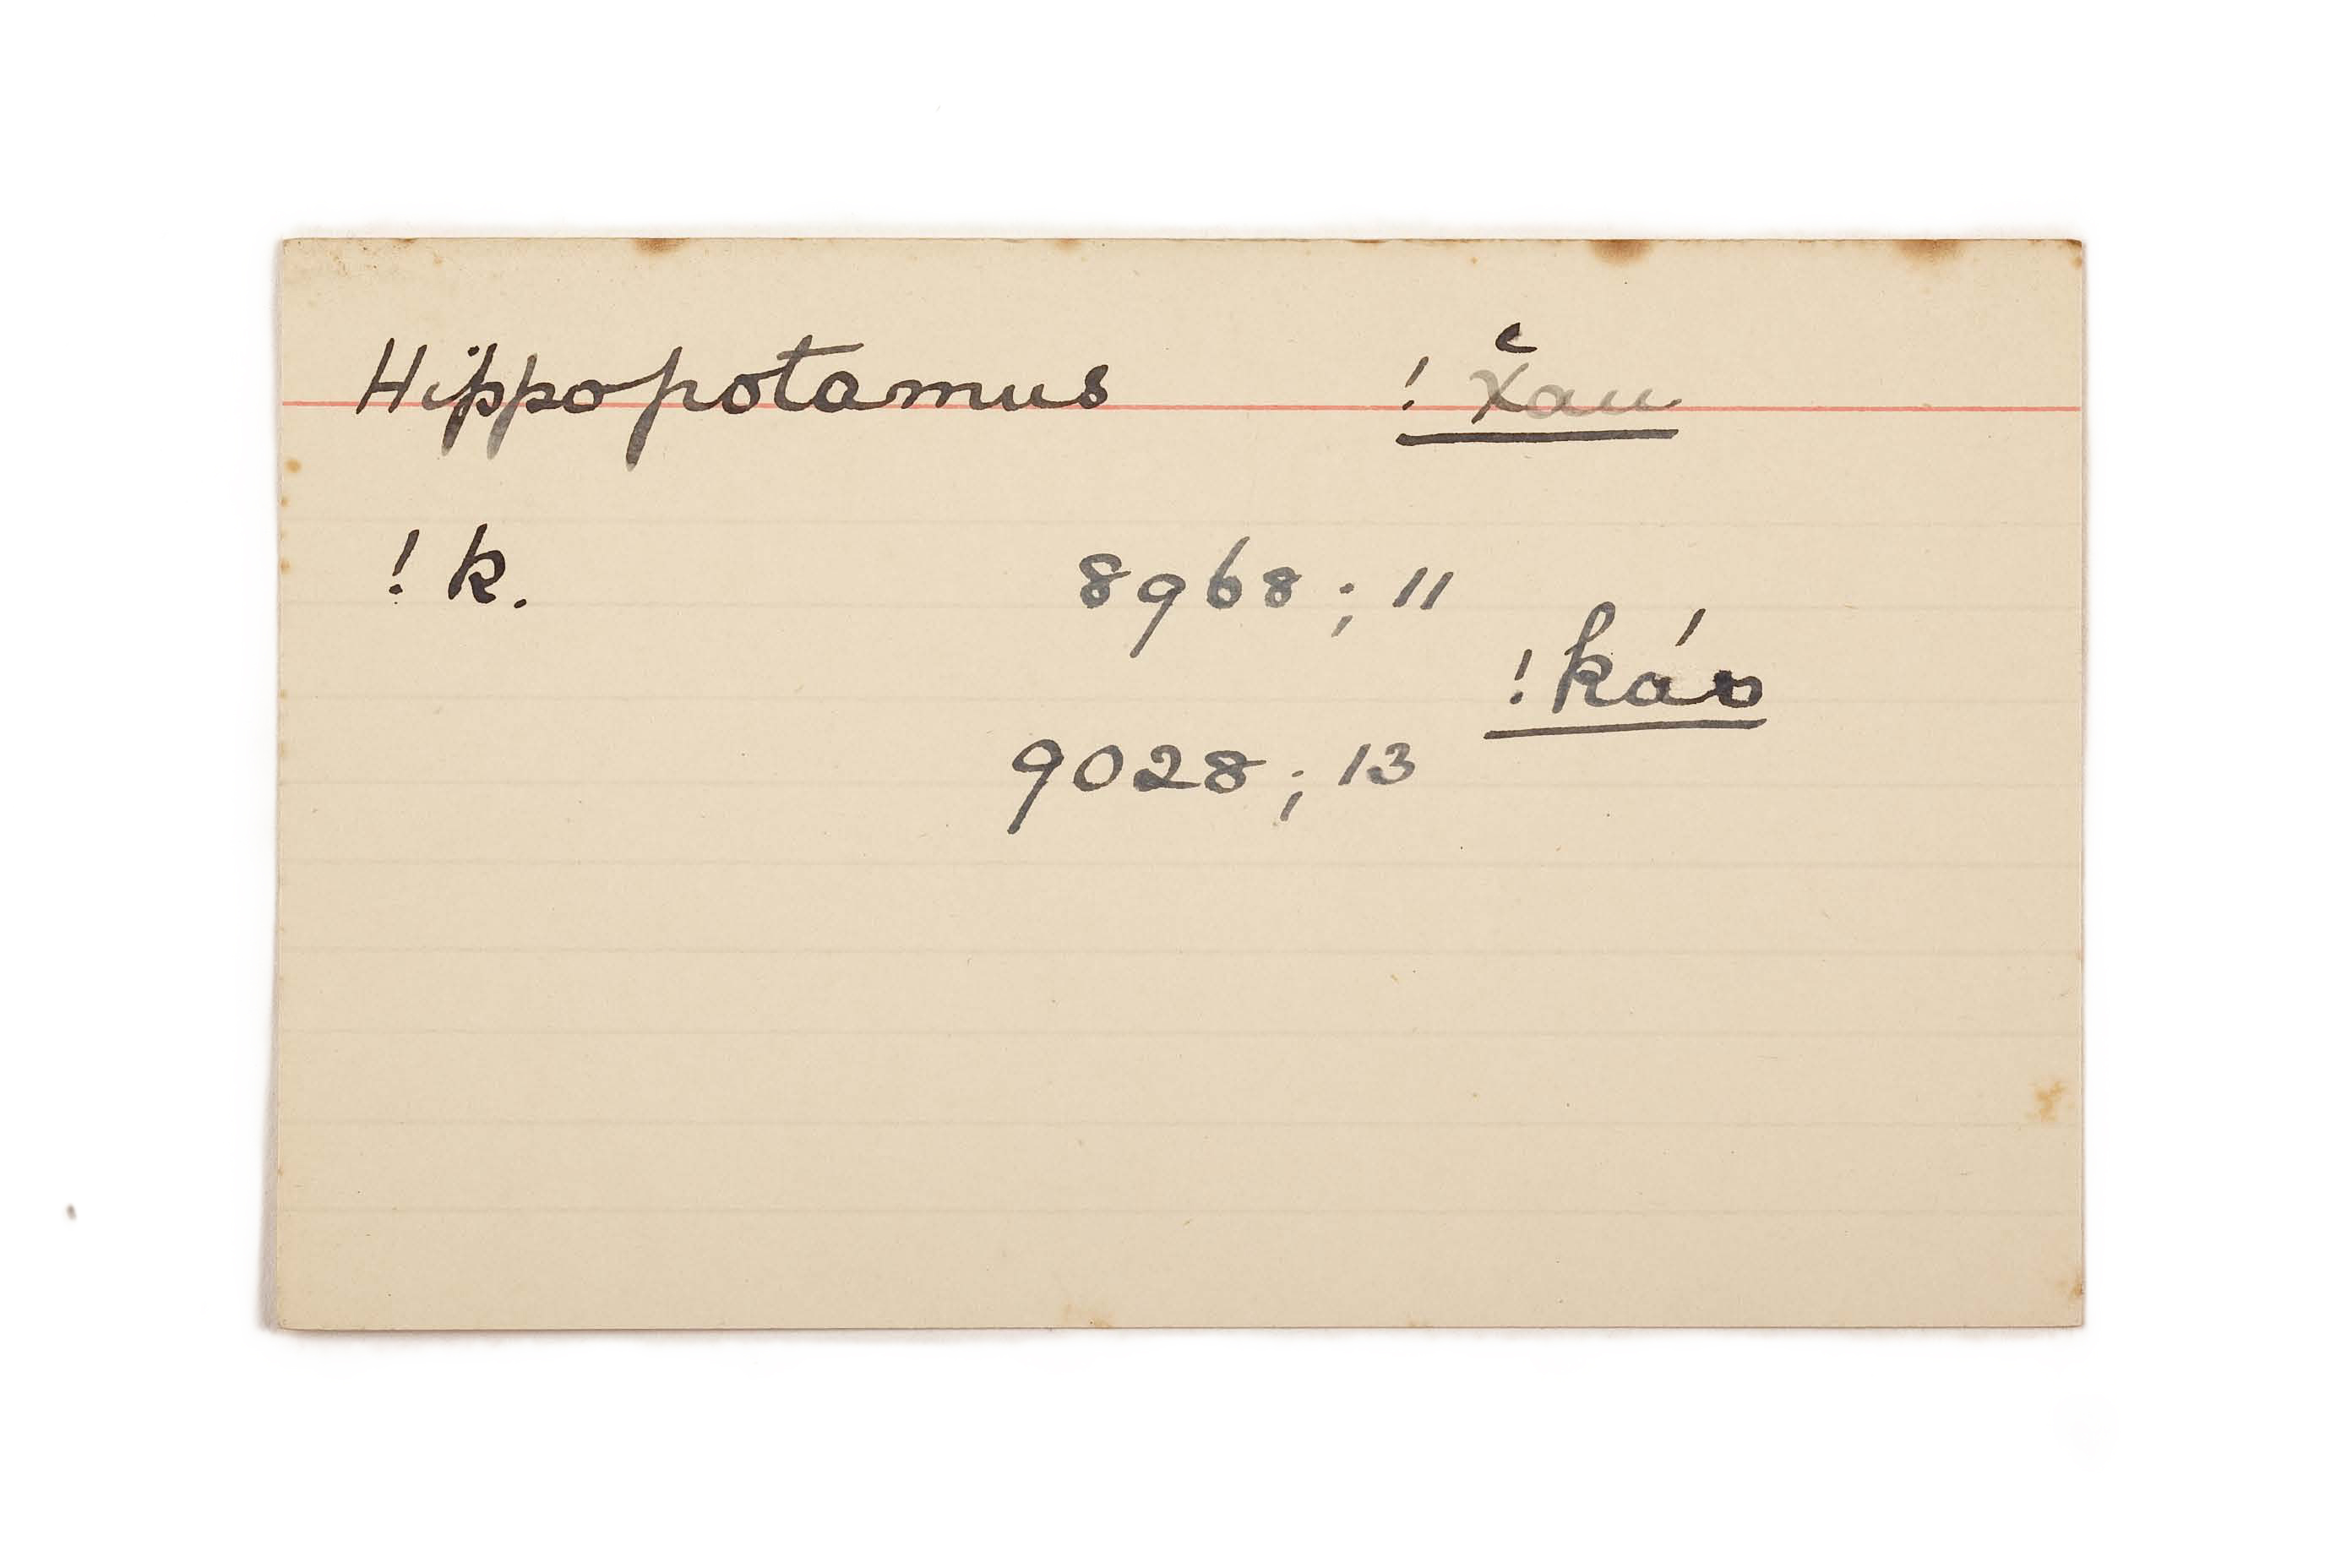 Hippopotamus ! x̆au
! k. 8968; 11
! káo
9028; 13